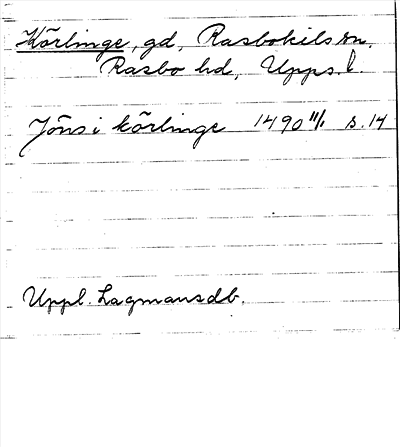 Körlinge, gd, Rasbokils sn,
Rasbo hd, Upps. l.
Jöns i körlinge 1490 11/1 s. 14
Uppl. Lagmansdb.